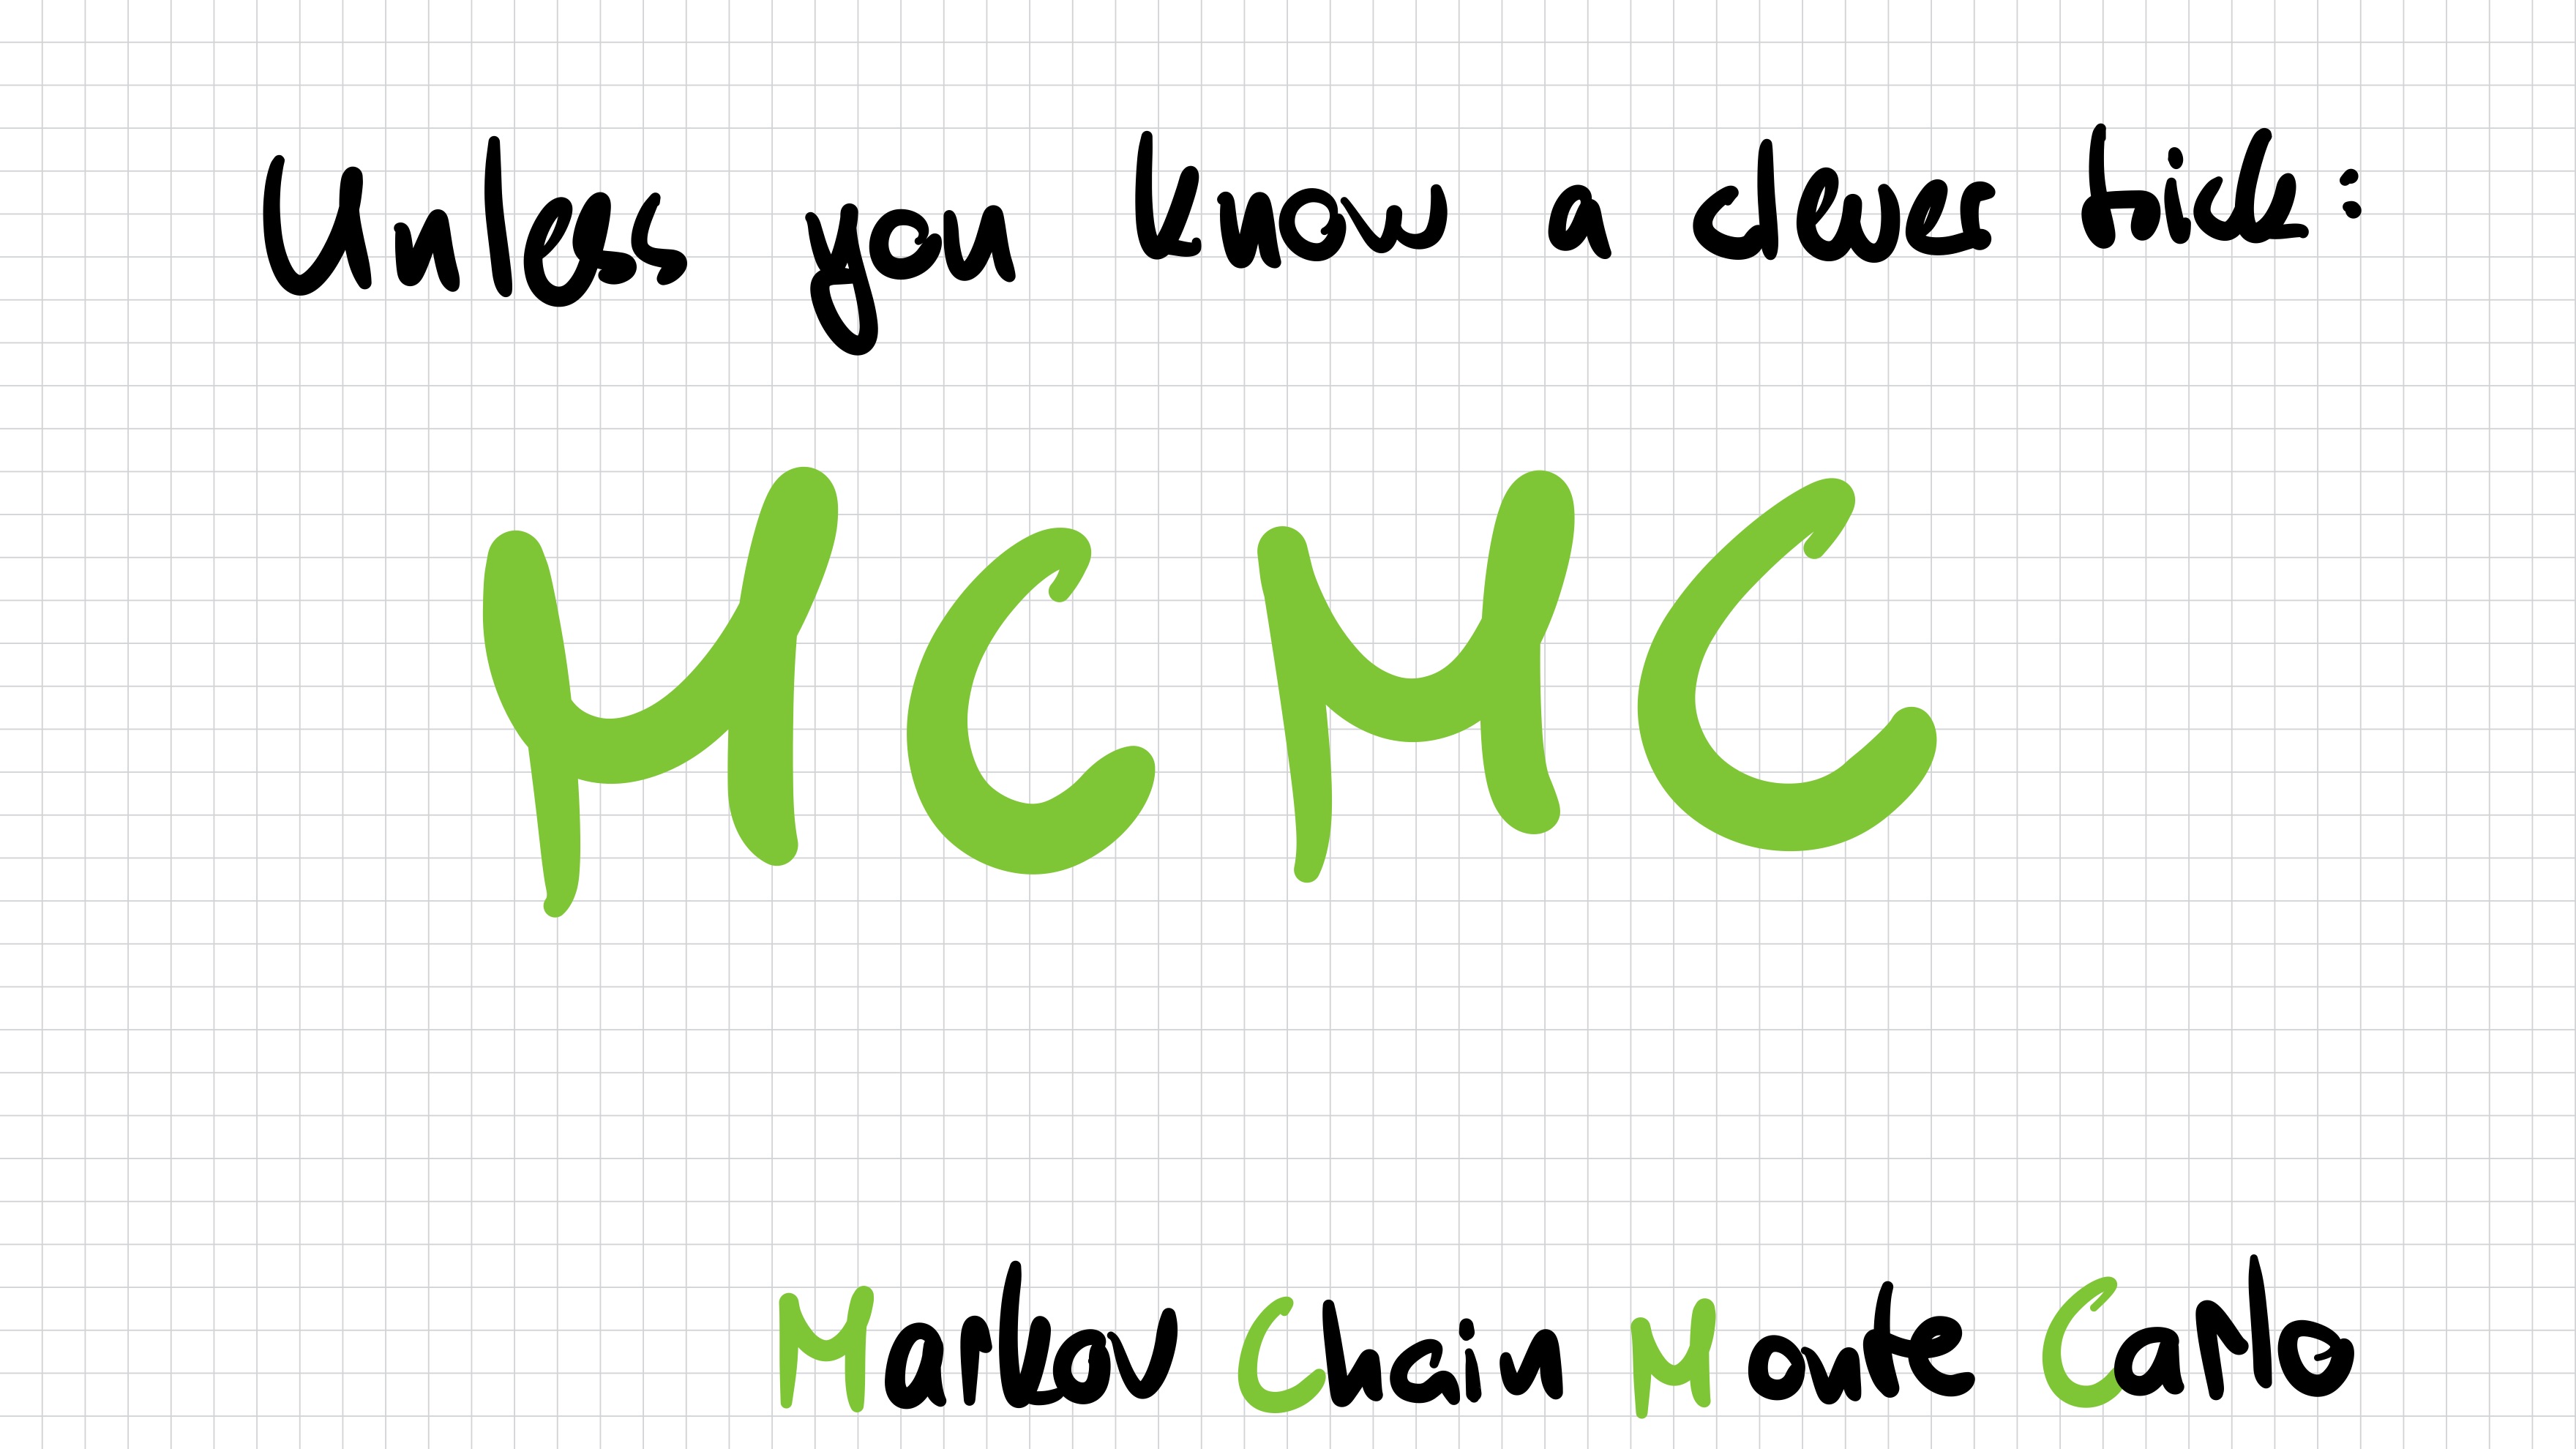 Unless you know a clever trick:
MCMC
Markov Chain Monte Carlo